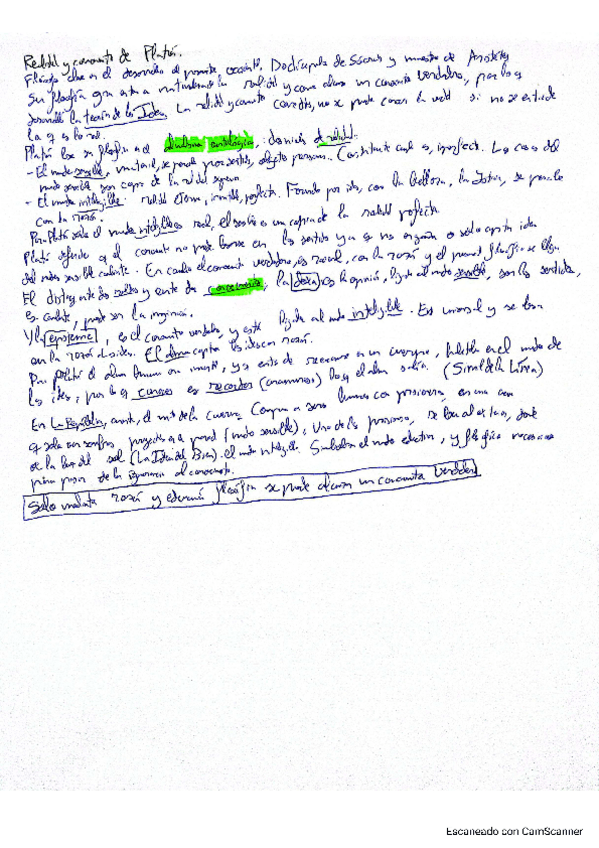 Realidad y conocimiento de Platón.
Filósofo clave en el desarrollo del pensamiento occidental. Discípulo de Sócrates y maestro de Aristóteles
Su filosofía gira entorno a la realidad y como alcanzar un conocimiento verdadero, por lo q
desarrolla la teoría de las Ideas. La realidad y conocimiento, no se puede conocer la verdad si no se entiende
lo q es lo real.
Platón basa su filosofía en el dualismo ontológico, división de realidad.
- El mundo sensible, material, se percibe por sentidos, objetos, personas. Constante cambio, imperfecto. Las cosas del
mundo sensible son copias de la realidad superior
- El mundo inteligible: realidad eterna, inmutable, perfecta. Formado por ideas, como la belleza, la Justicia, se percibe
con la razón.
Para Platón solo el mundo inteligible es real, el sensible es una copia de la realidad perfecta
Platón defiende q el conocimiento no puede basarse en los sentidos ya q nos engañan o solo captan ideas
del mundo sensible cambiante. En cambio el conocimiento verdadero, es racional, con la razón y el
El distingue entre dos de conocimiento, la doxa, es la opinión, ligada al mundo sensible, son los sentidos,
es cambiante, puede ser la imaginación.
Y la episteme, es el conocimiento verdadero, y está ligado al mundo inteligible. Es universal y se basa
en la razón. El alma capta las ideas con razón.
Para Platón el alma humana es inmortal, y antes de en un cuerpo, habitaba en el mundo de
las ideas, por lo q conocer es recordar (anamnesis) lo q el alma sabía. (Símil de la Línea)
En La República, el mito de la caverna. Compara a seres humanos con prisioneros, en una cueva
q solo ven sombras proyectadas en la pared (mundo sensible). Uno de los prisioneros, se libera
la luz del sol (La Idea del Bien) el mundo inteligible. Simboliza y filósofo
pasar de la ignorancia al conocimiento.
Solo mediante razón y filosofía se puede alcanzar un conocimiento verdadero
Escaneado con CamScanner